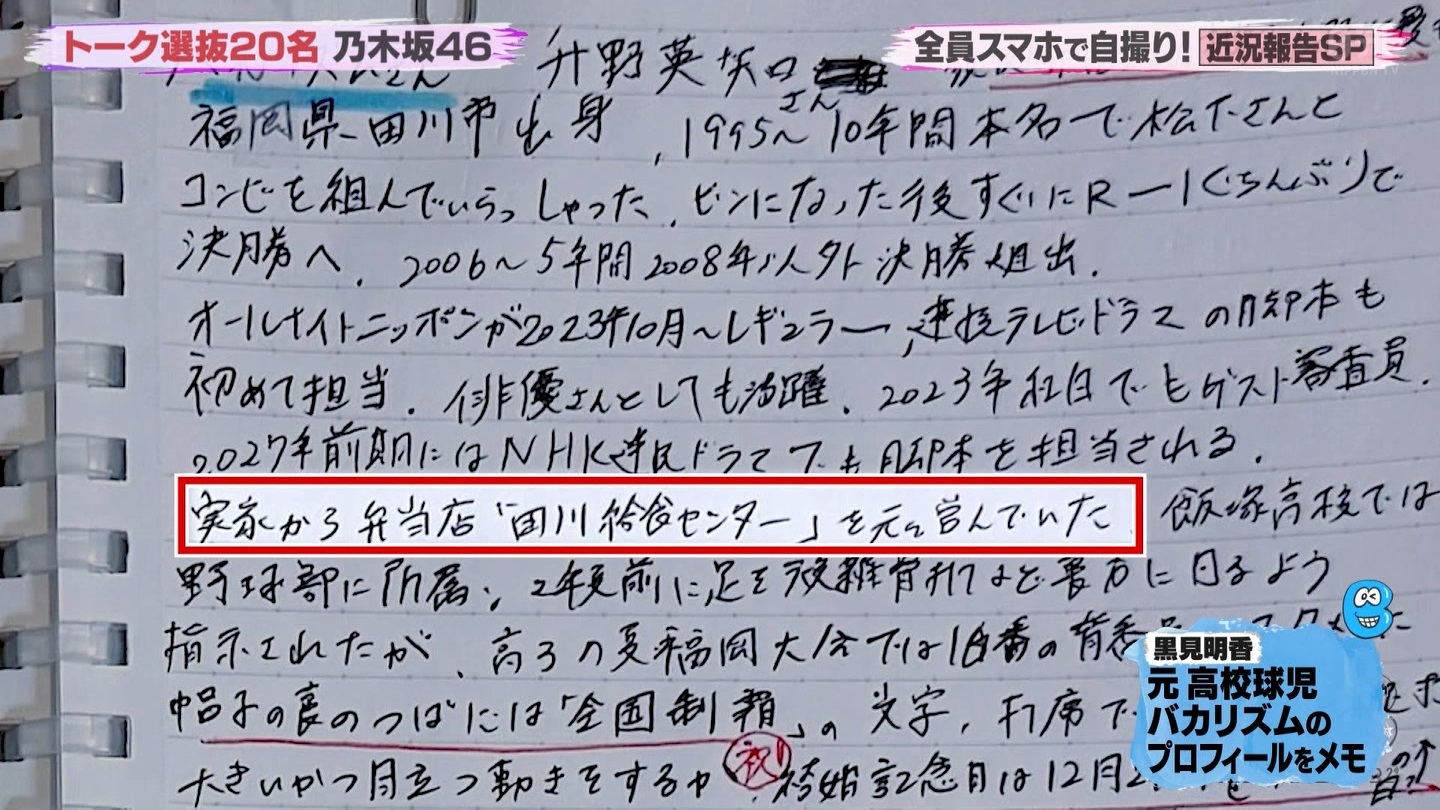 トーク選抜20名 乃木坂46
全員スマホで自撮り! 近況報告SP
NIPPON TV
さん 升野英知 さん
福岡県田川市出身、1995〜10年間本名で松下さんと
コンビを組んでいらっしゃった、ピンになった後すぐにR-1ぐらんぷりで
決勝へ、2006〜5年間2008年以外決勝進出、
オールナイトニッポンが2023年10月〜レギュラー、連続テレビドラマの脚本も
初めて担当、俳優さんとしても活躍、2023年紅白でもゲスト審査員、
2027年前期にはNHK連民ドラマでも脚本を担当される、
実家から弁当店「田川給食センター」を元々営んでいた 飯塚高校では
野球部に所属、2年夏前に足を複雑骨折など裏方に回るよう
指示されたが、高3の夏福岡大会では16番の背番号
帽子の裏のつばには「全国制覇」の文字、打席で
大きいかつ目立つ動きをするか 祝 結婚記念日は12月2
黒見明香
元 高校球児
バカリズムの
プロフィールをメモ